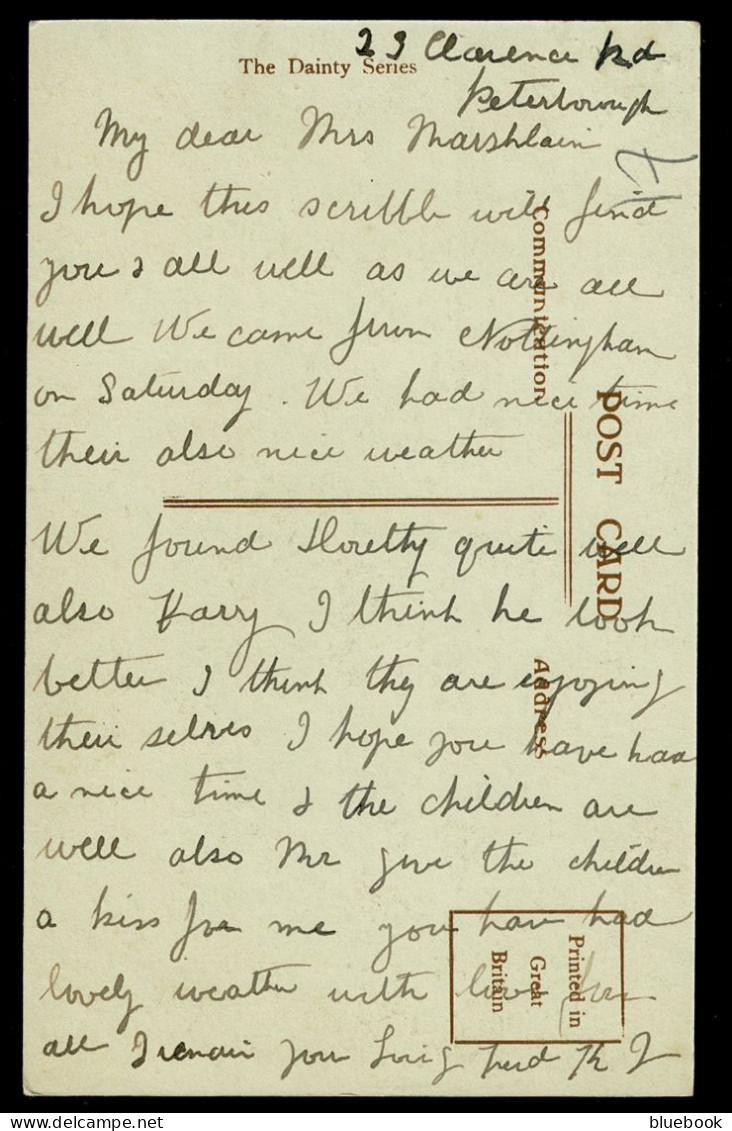 23 Clarence Rd
The Dainty Series
Peterborough
My dear Mrs
I hope this scribble will find
you & all well as we are all
well We came from Nottingham
on Saturday. We had nice time
their also nice weather
We found quite well
also Harry I think he look
better I think they are enjoying
their selves I hope you have had
a nice time & the children are
well also Mr give the children
a kiss for me you have had
lovely weather with love from
all I remain your
Communication
POST CARD
Address
Printed in
Great
Britain
bluebook